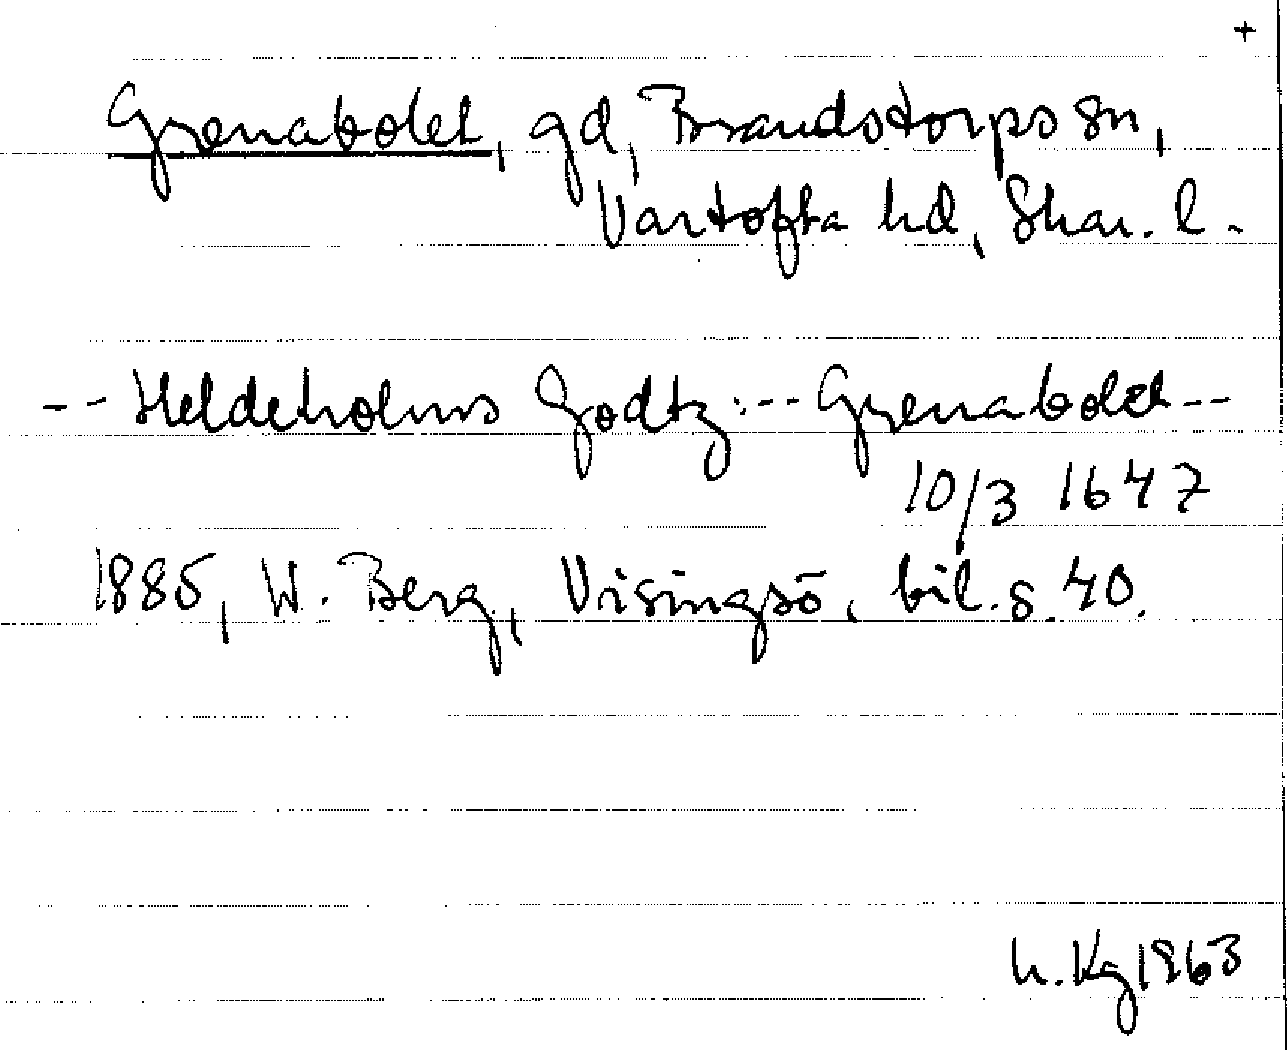 +
Grenabolet, gd, Brandstorps sn,
Vartofta hd, Skar. l.
-- Heldeholms Godtz :-- Grenabolet --
10/3 1647
1885, W. Berg, Visingsö, bil. s. 40.
h. Kg 1963